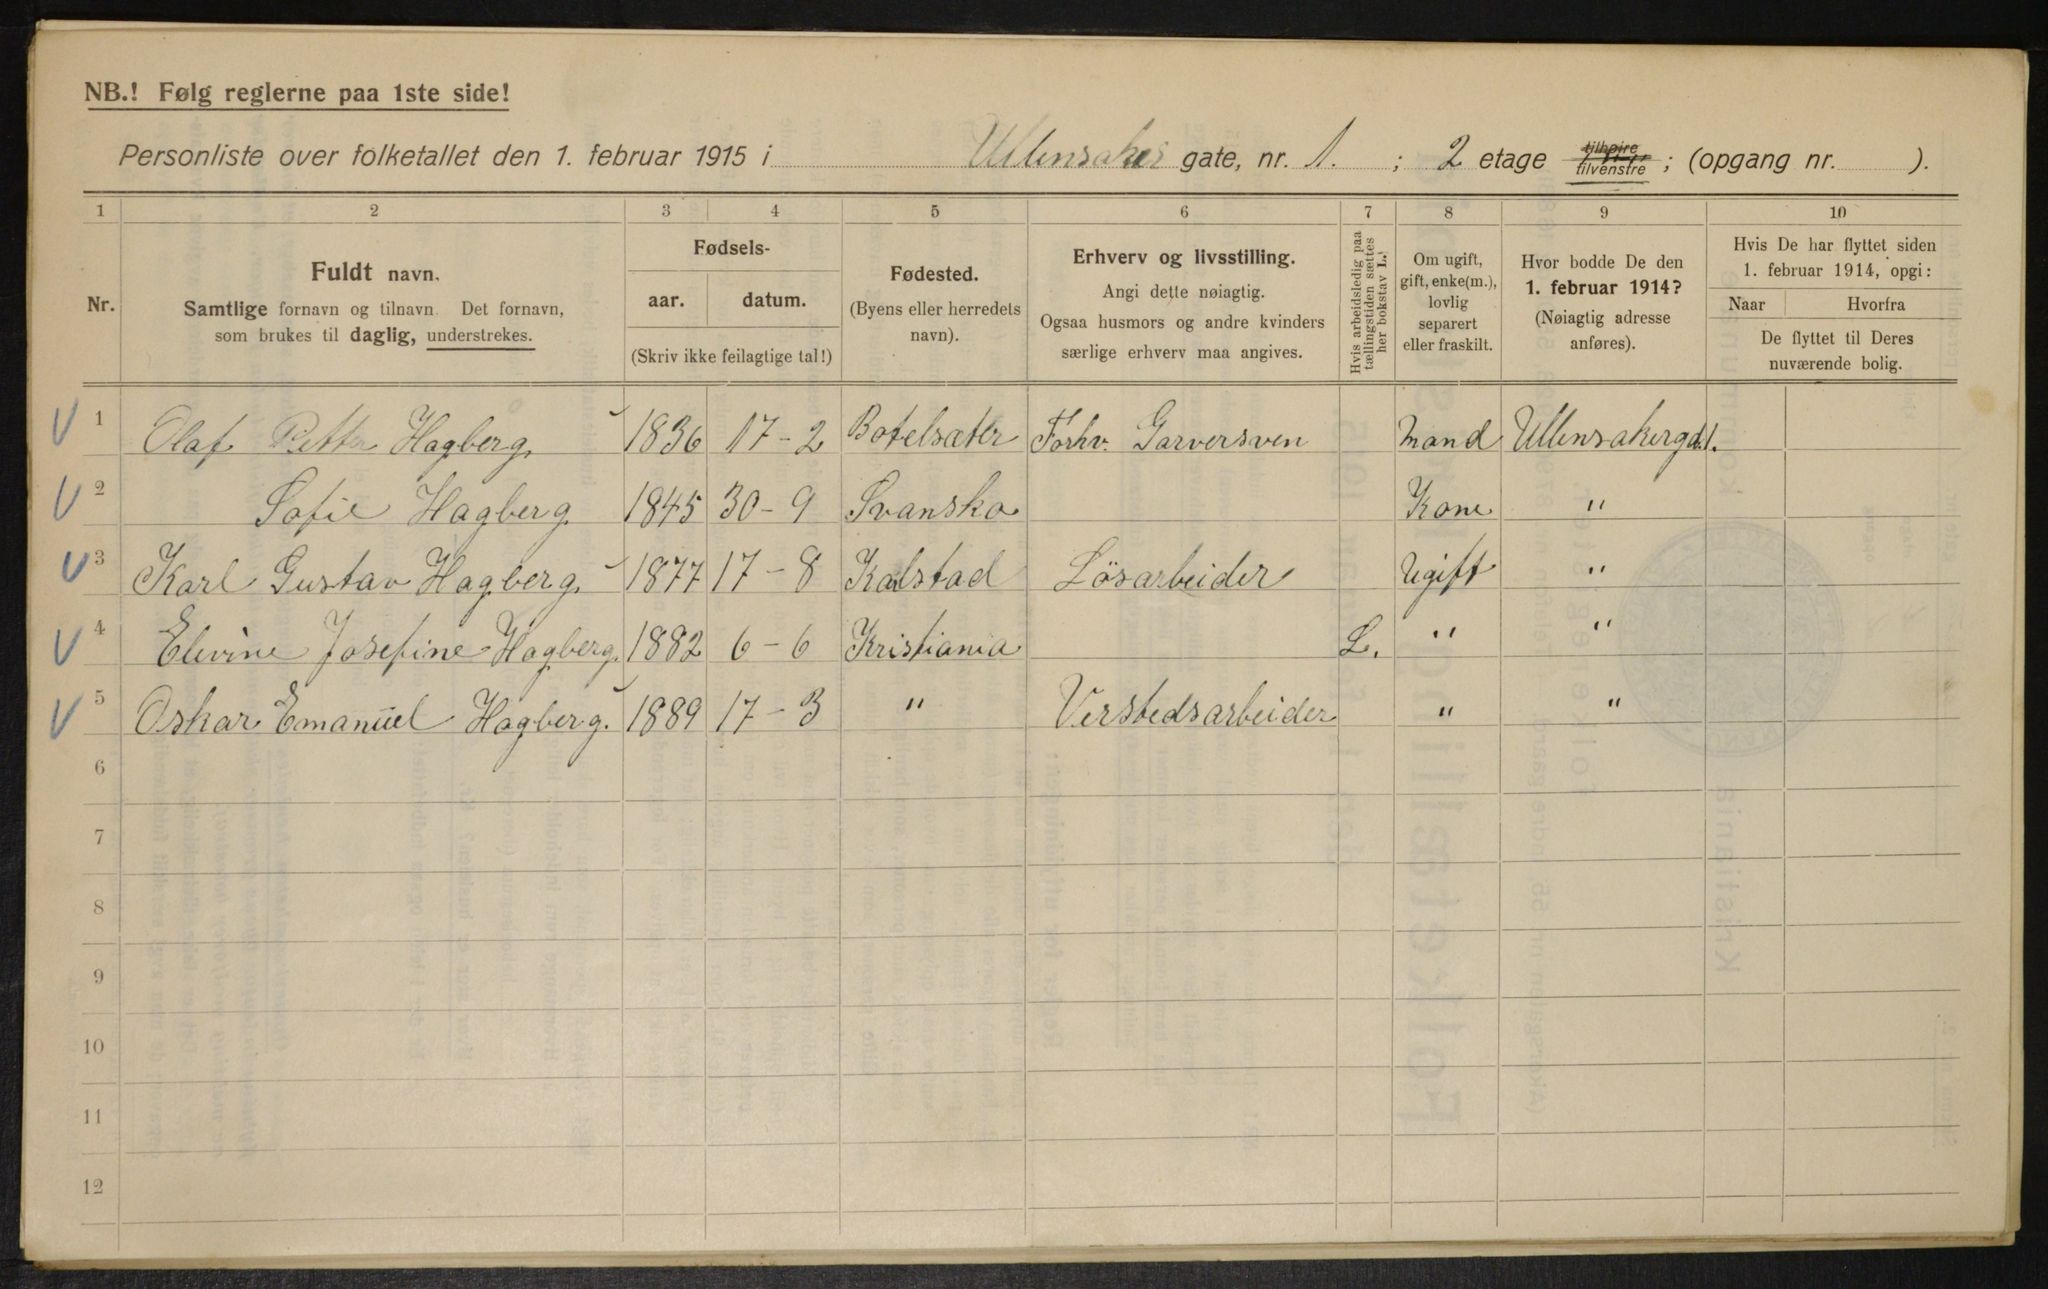 NB.! Følg reglerne paa 1ste side!
Personliste over folketallet den 1. februar 1915 i Ullensaker gate, nr. 1. ; 2 etage tilhøire tilvenstre ; (opgang nr. ).
1 2 3 4 5 6 7 8 9 10
Nr.
Fuldt navn.
Samtlige fornavn og tilnavn. Det fornavn,
som brukes til daglig, understrekes.
Fødsels-
aar. datum.
(Skriv ikke feilagtige tal!)
Fødested.
(Byens eller herredets
navn).
Erhverv og livsstilling.
Angi dette nøiagtig.
Ogsaa husmors og andre kvinders
særlige erhverv maa angives.
Hvis arbeidsledig paa
tællingstiden sættes
her bokstav L.
Om ugift,
gift, enke(m.),
lovlig
separert
eller fraskilt.
Hvor bodde De den
1. februar 1914?
(Nøiagtig adresse
anføres).
Hvis De har flyttet siden
1. februar 1914, opgi:
Naar Hvorfra
De flyttet til Deres
nuværende bolig.
1 Olaf Petter Hagberg. 1836 17-2 Botelsæter Forhv. Garversven Mand Ullensakergd. 1.
2 Sofie Hagberg. 1845 30-9 Svanska Kone "
3 Karl Gustav Hagberg. 1877 17-8 Kalstad Lösarbeider Ugift "
4 Elevine Josefine Hagberg. 1882 6-6 Kristiania L. " "
5 Oskar Emanuel Hagberg. 1889 17-3 " Verstedsarbeider " "
6
7
8
9
10
11
12